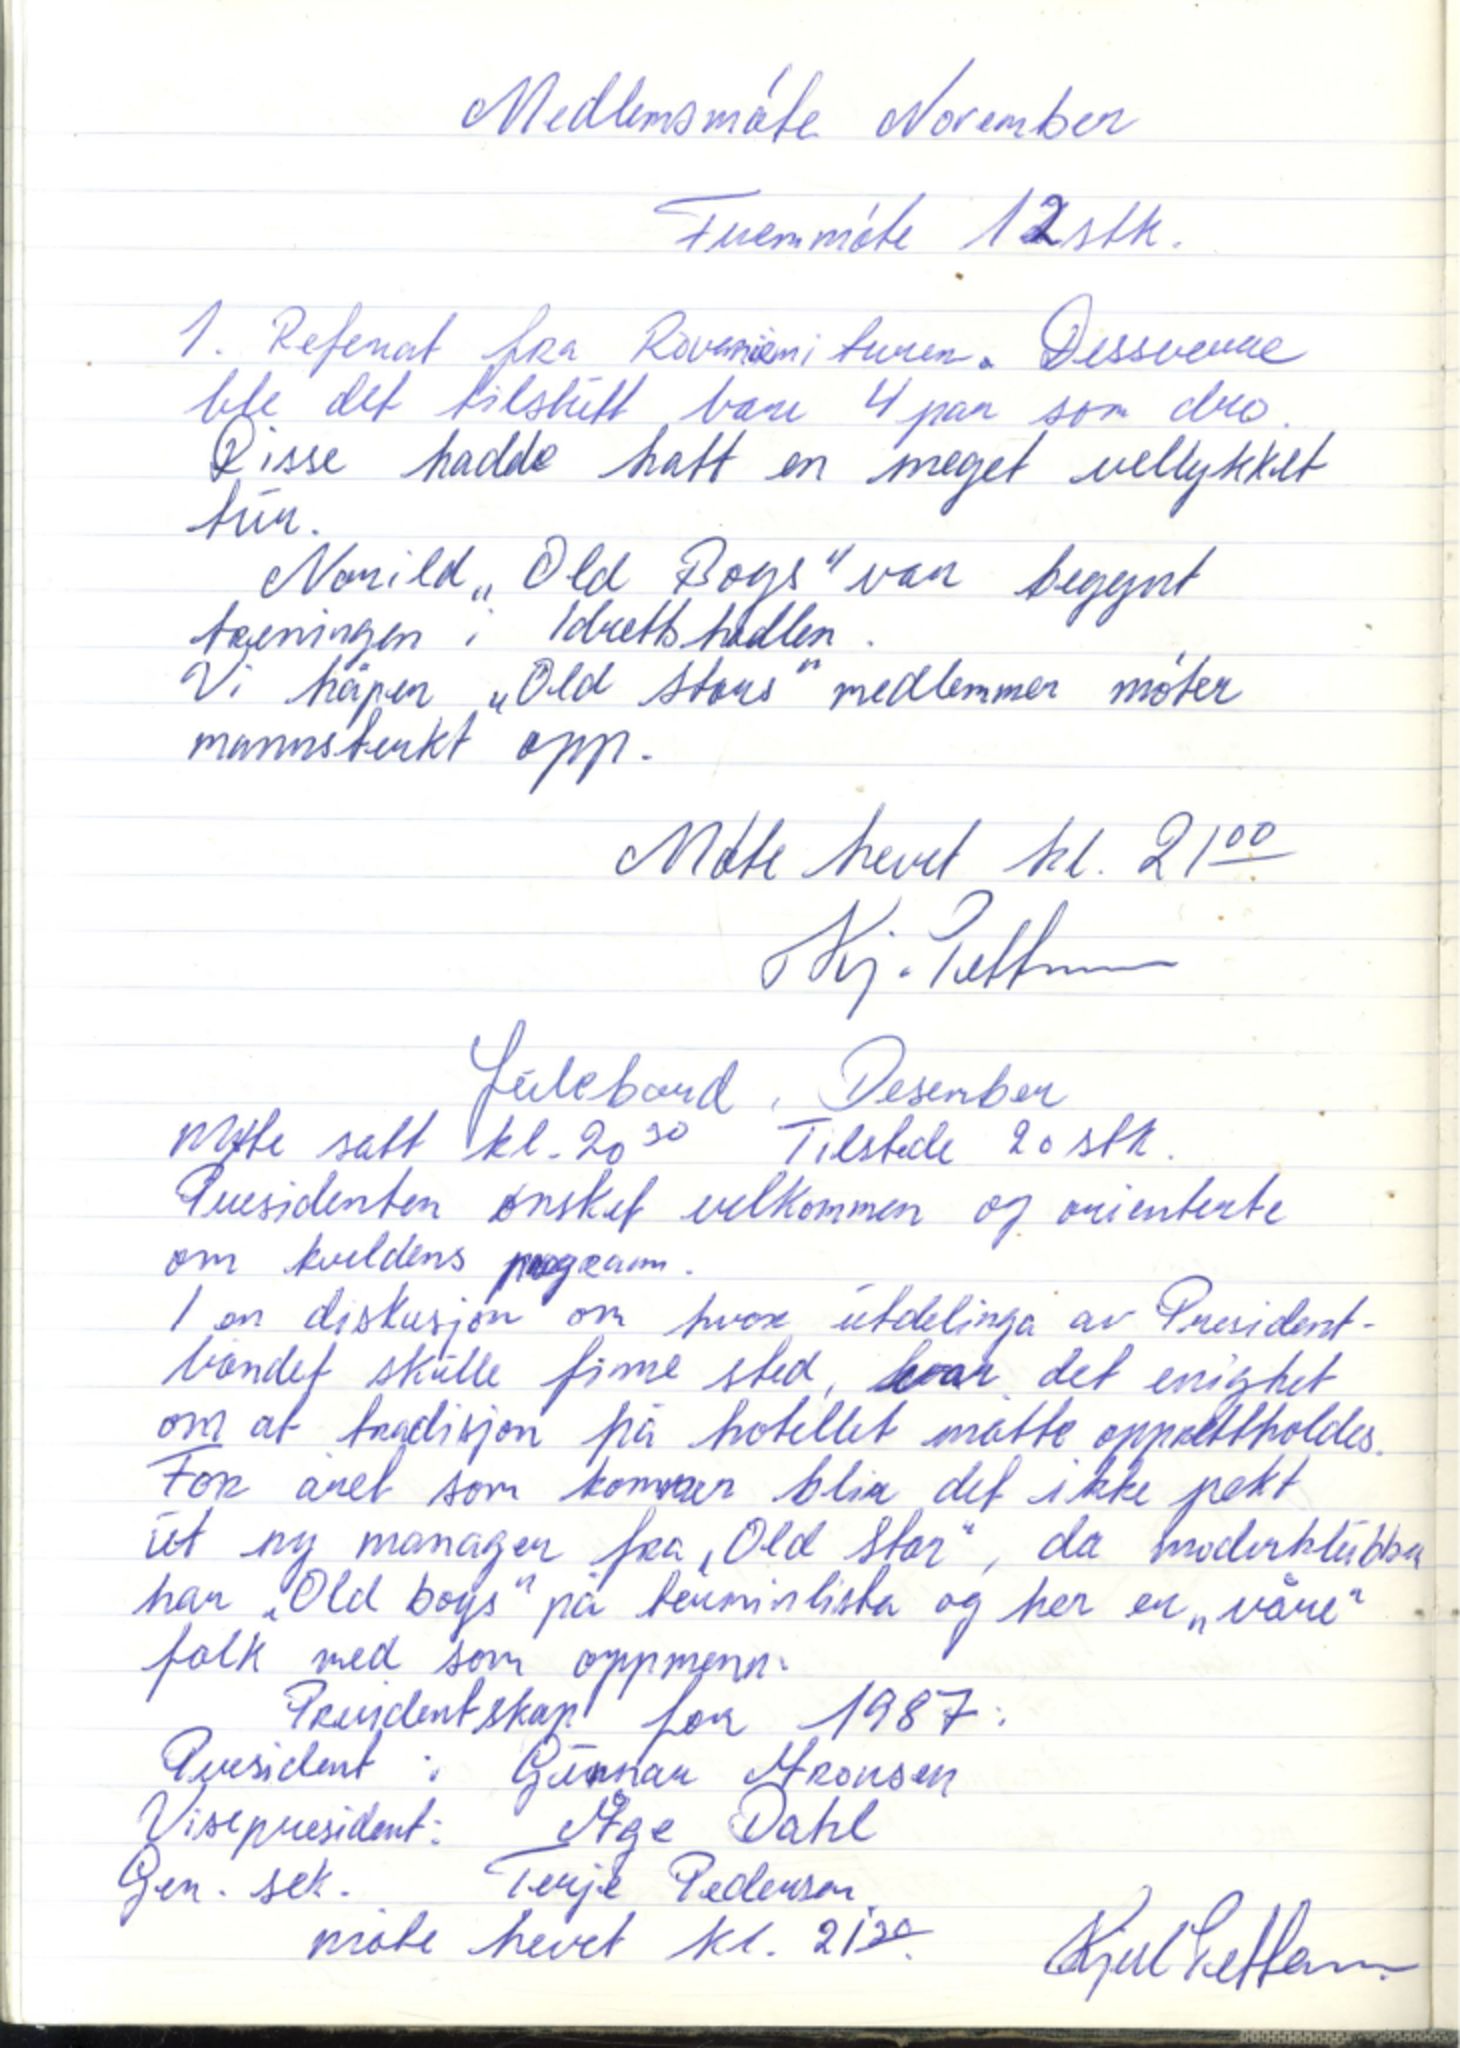 Medlemsmøte November
Fremmøte 12 stk.
1. Referat fra Rovaniemi turen. Dessverre
ble det tilslutt bare 4 par som dro.
Disse hadde hatt en meget vellykket
tur.
Norild „Old Boys" var begynt
treningen i Idrettshallen.
Vi håper „Old Stars" medlemmer møter
mannsterkt opp.
Møte hevet kl. 21⁰⁰
Kj.
Julebord, Desember
Møte satt kl. 20³⁰ Tilstede 20 stk.
Presidenten ønsket velkommen og orienterte
om kveldens program.
I en diskusjon om hvor utdelinga av President-
båndet skulle finne sted, var det enighet
om at tradisjon på hotellet måtte opprettholdes.
For året som kommer blir det ikke pekt
ut ny manager fra „Old Star", da moderklubben
har „Old boys" på terminlista og her er „våre"
folk med som oppmenn.
Presidentskap for 1987:
President: Gunnar Aronsen
Visepresident: Åge Dahl
Gen. sek. Terje Pedersen
møte hevet kl. 21³⁰
Kjell